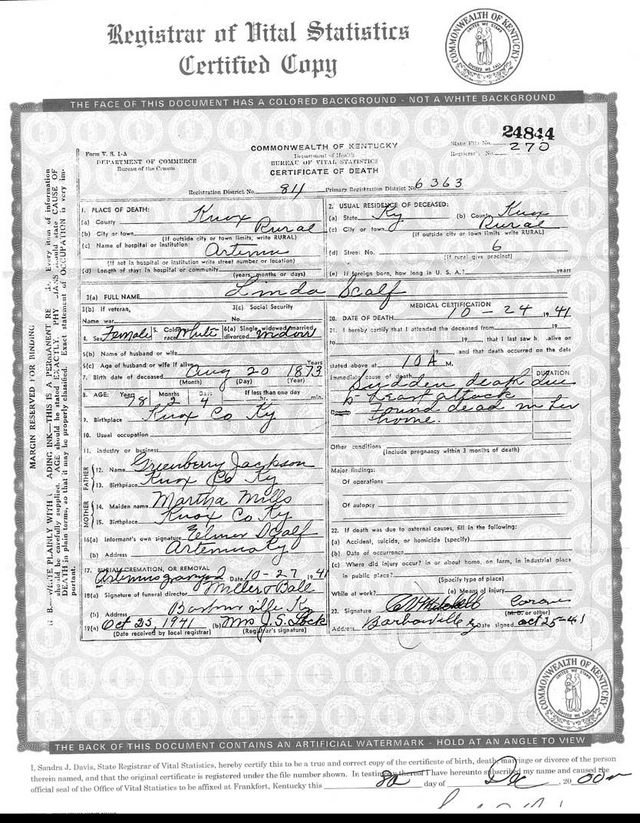 Registrar of Vital Statistics
Certified Copy
COMMONWEALTH OF KENTUCKY
THE FACE OF THIS DOCUMENT HAS A COLORED BACKGROUND - NOT A WHITE BACKGROUND
24844
Form V. S. 1-A
COMMONWEALTH OF KENTUCKY
State File No.
270
DEPARTMENT OF COMMERCE
Department of Health
Bureau of the Census
BUREAU OF VITAL STATISTICS
Registrar's No.
CERTIFICATE OF DEATH
Registration District No. 811 Primary Registration District No. 6363
1. PLACE OF DEATH:
(a) County Knox
(b) City or town Rural
(If outside city or town limits, write RURAL)
(c) Name of hospital or institution: Artemus
(If not in hospital or institution write street number or location)
(d) Length of stay: In hospital or community
(years, months or days)
2. USUAL RESIDENCE OF DECEASED:
(a) State Ky (b) County Knox
(c) City or town Rural
(If outside city or town limits, write RURAL)
(d) Street No. 6
(If rural give precinct)
(e) If foreign born, how long in U. S. A.? years
3(a) FULL NAME Linda Scalf
3(b) If veteran, 3(c) Social Security
Name war No.
4. Sex Female 5. Color or race White 6(a) Single, widowed, married, divorced Widow
6(b) Name of husband or wife
6(c) Age of husband or wife if alive Years
7. Birth date of deceased Aug 20 1873
(Month) (Day) (Year)
8. AGE: Years Months Days If less than one day
2 4 min.
9. Birthplace Knox Co Ky
10. Usual occupation
11. Industry or business
FATHER
12. Name Greenberry Jackson
13. Birthplace Knox Co Ky
MOTHER
14. Maiden name Martha Mills
15. Birthplace Knox Co Ky
16(a) Informant's own signature Elmer Scalf
(b) Address Artemus Ky
17. BURIAL, CREMATION, OR REMOVAL
Date 10-27, 1941
18(a) Signature of funeral director Miller & Ball
(b) Address Barbourville Ky
19(a) Oct 25 1941 (b) Mrs J. S.
(Date received by local registrar) (Registrar's signature)
MEDICAL CERTIFICATION
20. DATE OF DEATH 10-24 1941
21. I hereby certify that I attended the deceased from 19
to 19 that I last saw h alive on
19 and that death occurred on the date
stated above at 10A M.
DURATION
Immediate cause of death Sudden death due
to heart attack
found dead in her
home.
Other conditions
(Include pregnancy within 3 months of death)
Major findings:
Of operations
Of autopsy
22. If death was due to external causes, fill in the following:
(a) Accident, suicide, or homicide (specify)
(b) Date of occurrence
(c) Where did injury occur? in or about home, on farm, in industrial place
in public place?
(Specify type of place)
While at work? (e) Means of injury
23. Signature
(M.D. or other)
Address Barbourville Ky Date signed Oct 25-41
MARGIN RESERVED FOR BINDING
COMMONWEALTH OF KENTUCKY
THE BACK OF THIS DOCUMENT CONTAINS AN ARTIFICIAL WATERMARK - HOLD AT AN ANGLE TO VIEW
I, Sandra J. Davis, State Registrar of Vital Statistics, hereby certify this to be a true and correct copy of the certificate of birth, death, marriage or divorce of the person
therein named, and that the original certificate is registered under the file number shown. In testimony thereof I have hereunto subscribed my name and caused the
official seal of the Office of Vital Statistics to be affixed at Frankfort, Kentucky this day of Dec, 20